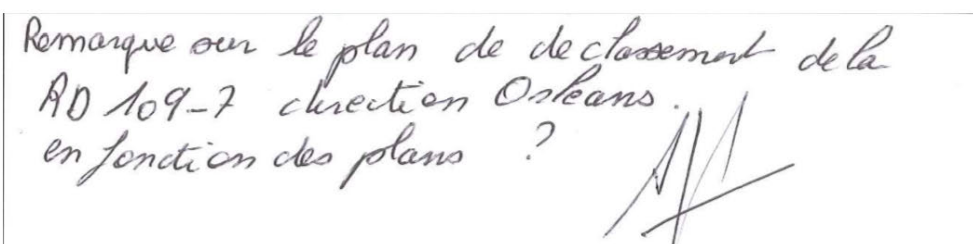 Remarque sur le plan de declassement de la
RD 109-7 direction Orleans.
en fonction des plans ?